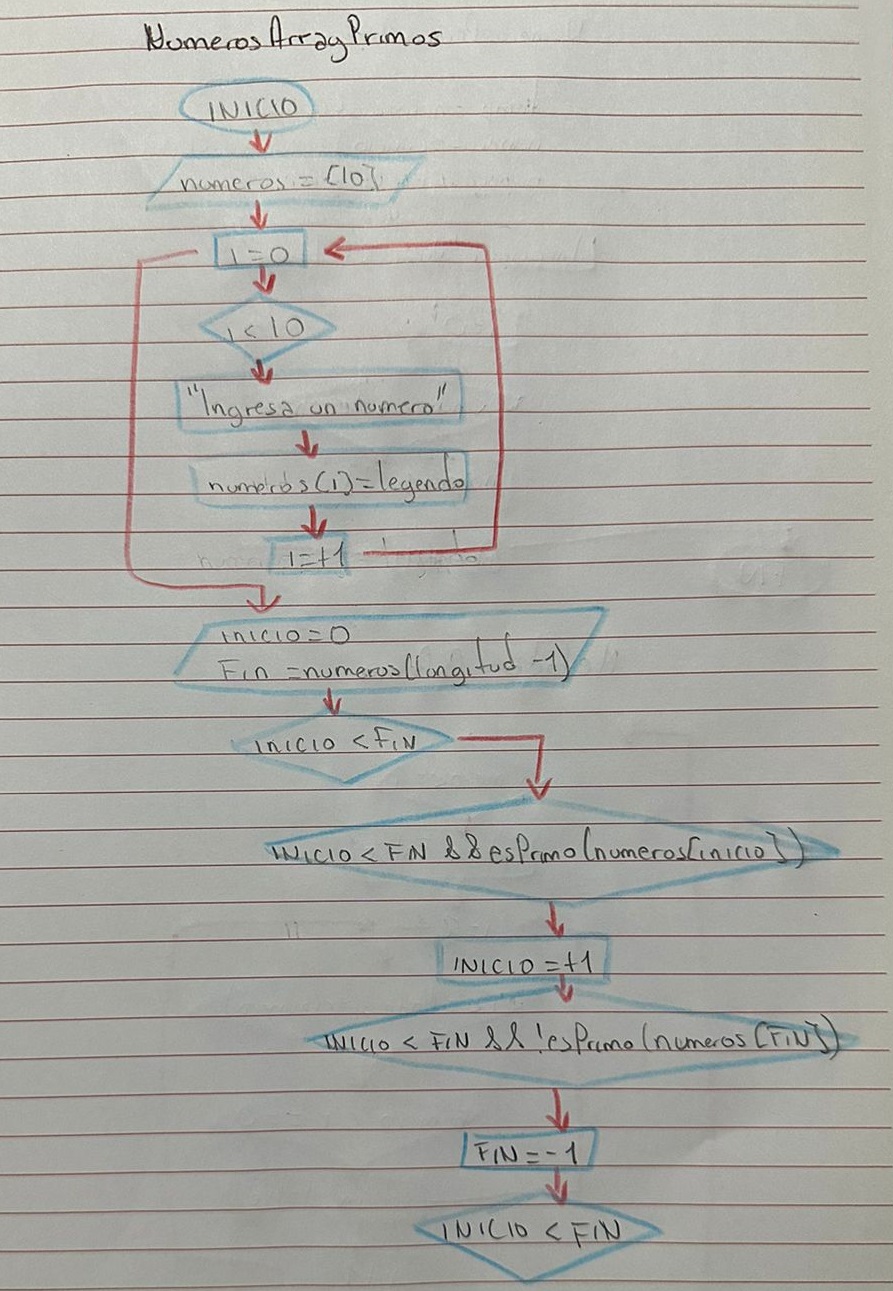 NumerosArrayPrimos
INICIO
numeros = [10]
i=0
i<10
"Ingresa un numero"
numeros(i)=leyendo
i=+1
inicio=0
Fin =numeros(longitud -1)
inicio <FIN
INICIO < FIN && esPrimo(numeros[inicio])
INICIO =+1
INICIO < FIN && !esPrimo(numeros[FIN])
FIN =-1
INICIO < FIN